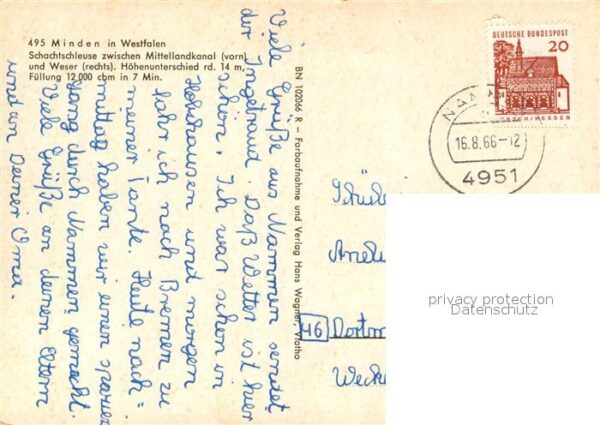 495 Minden in Westfalen
Schachtschleuse zwischen Mittellandkanal (vorn)
und Weser (rechts). Höhenunterschied rd. 14 m,
Füllung 12 000 cbm in 7 Min.
Viele Grüße aus Nammen sendet
der Ingetraud. Daß Wetter ist hier
schön. Ich war schon in
Holzhausen und morgen
fahr ich nach Bremen zu
meiner Tante. Heute nach=
mittag haben wir einen spazier
gang durch Nammen gemacht.
Viele Grüße an deinen Eltern
und an Deiner Oma.
BN 102066 R - Farbaufnahme und Verlag Hans Wagner, Vlotho
DEUTSCHE BUNDESPOST
20
LORSCH/HESSEN
16.8.66-12
4951
46 Dortm
privacy protection
Datenschutz